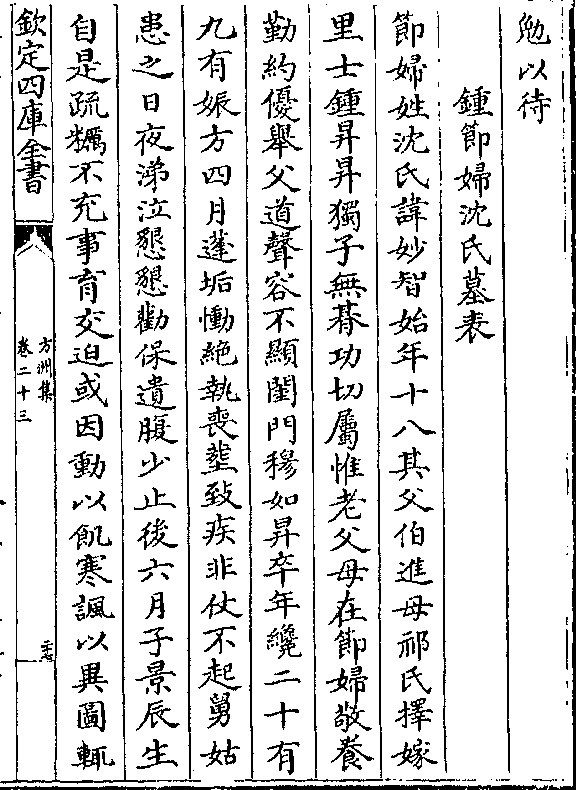 勉以待
鍾節婦沈氏墓表
節婦姓沈氏諱妙智始年十八其父伯進母祁氏擇嫁
里士鍾昇昇獨子無朞功切屬惟老父母在節婦敬養
勤約優舉父道聲容不顯閨門穆如昇卒年纔二十有
九有娠方四月蓬垢慟絶執喪塟致疾非仗不起舅姑
患之日夜涕泣懇懇勸保遺腹少止後六月子景辰生
自是疏糲不充事育交迫或因動以飢寒諷以異圖輒
欽定四庫全書
方洲集
卷二十三